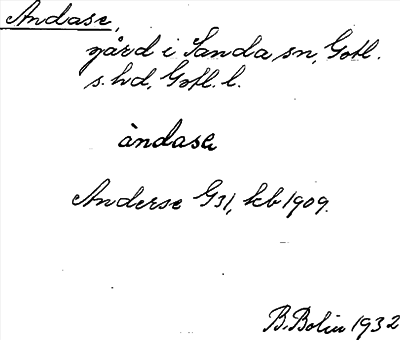 Andase,
gård i Sanda sn, Gotl.
s. hd, Gotl. l.
àndasa
Anderse G31, kb 1909.
B. Bolin 1932